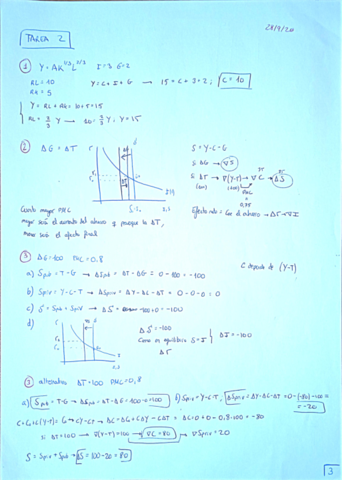 28/9/20
TAREA 2
① Y = AK^1/3 L^2/3 I=3 G=2
RL=10
RK=5
Y=C+I+G → 15=C+3+2; C=10
Y = RL+RK = 10+5=15
RL = 2/3 Y → 10 = 2/3 Y; Y=15
② ΔG = ΔT
S = Y-C-G
Si ΔG → ∇S
Si ΔT → ∇(Y-T) → ∇C → ΔS
PMC
0,75
Cuanto mayor PMC
mayor será el aumento del ahorro y porque la ΔT,
menor será el efecto final
③ ΔG=100 PMC=0.8
C depende de (Y-T)
a) Spub = T-G → ΔSpub = ΔT-ΔG = 0-100 = -100
b) Spriv = Y-C-T → ΔSpriv = ΔY-ΔC-ΔT = 0-0-0 = 0
c) S = Spub + Spriv → ΔS = -100+0 = -100
d)
ΔS = -100
Como en equilibrio S=I
ΔI = -100
③ alternativa ΔT=100 PMC=0,8
a) Spub = T-G → ΔSpub = ΔT-ΔG = 100-0 = 100
b) Spriv = Y-C-T; ΔSpriv = ΔY-ΔC-ΔT = 0-(-80)-100 =
= -20
si ΔT=100 → ∇(Y-T)=100 → ∇C=80 → ∇Spriv=20
S = Spriv + Spub → ΔS = 100-20 = 80
3